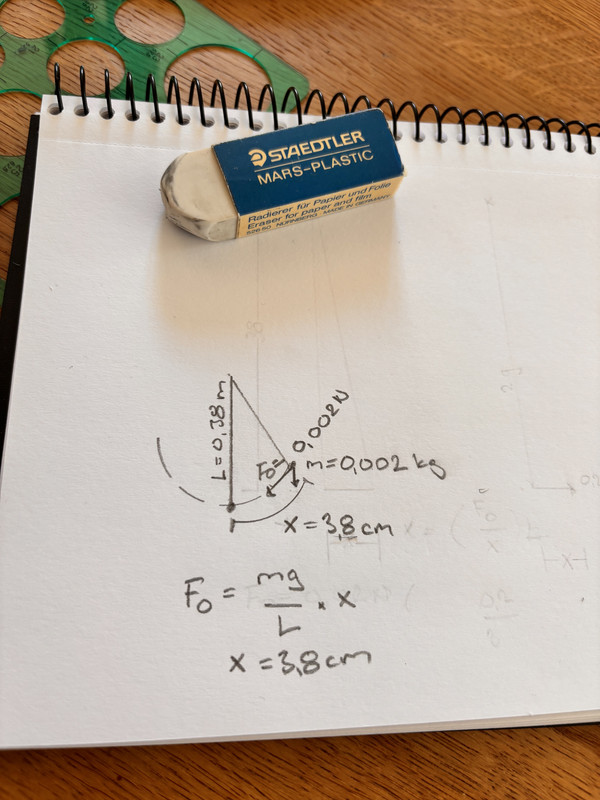 STAEDTLER
MARS-PLASTIC
Radierer für Papier und Folie
Eraser for paper and film
526 50 NÜRNBERG MADE IN GERMANY
L = 0,38 m
F₀ = 0,002 N
m = 0,002 kg
x = 3,8 cm
F₀ = mg / L · x
x = 3,8 cm